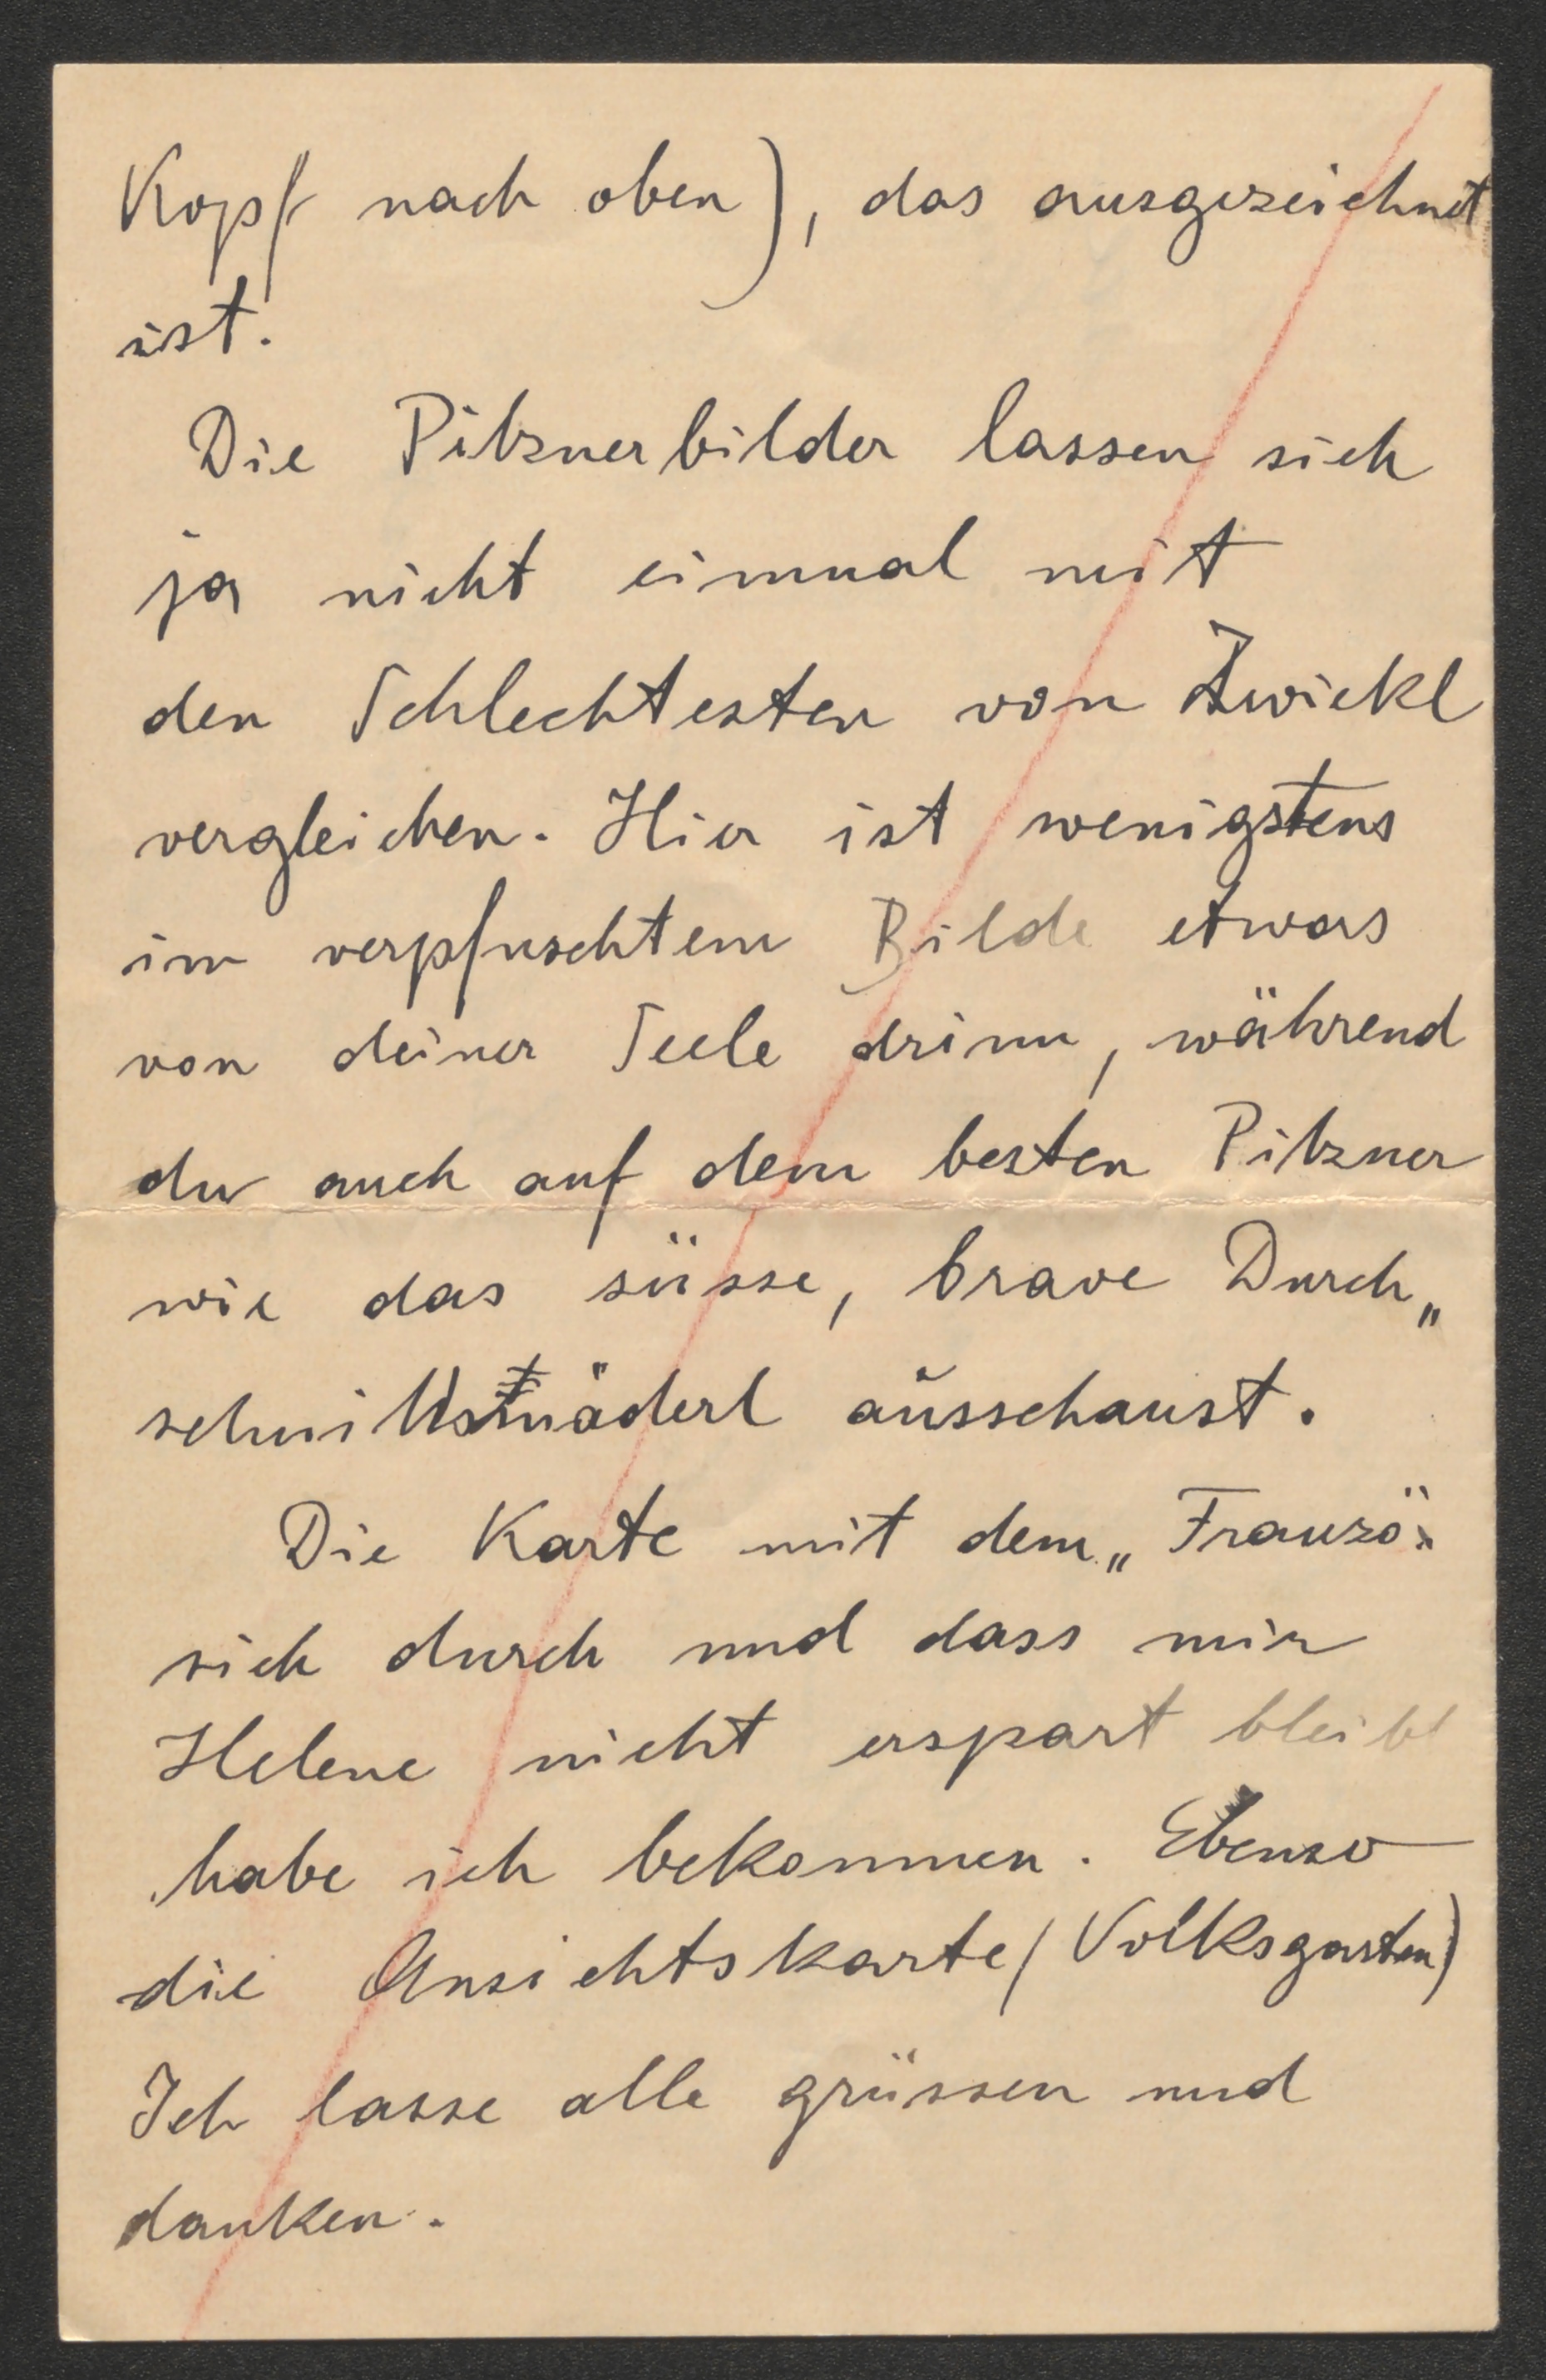 Kopf nach oben), das ausgezeichnet
ist.
Die Pitznerbilder lassen sich
ja nicht einmal mit
den Schlechtesten von Zwickl
vergleichen. Hier ist wenigstens
im verpfuschtem Bilde etwas
von deiner Seele drinn, während
du auch auf dem besten Pitzner
wie das süsse, brave Durch„
schnittsmäderl ausschaust.
Die Karte mit dem „Franzö„
sich durch und dass mir
Helene nicht erspart bleibt
habe ich bekommen. Ebenso
die Ansichtskarte (Volksgarten)
Ich lasse alle grüssen und
danken.